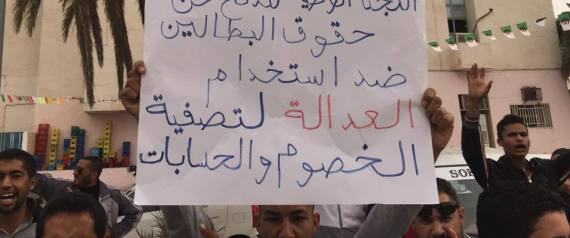 اللجنة الوطنية للدفاع عن
حقوق البطالين
ضد استخدام
العدالة لتصفية
الخصوم والحسابات